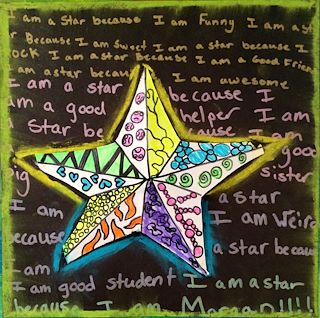 I am a Star because I am Funny I am a St
Because I am Sweet I am a star because I
ROCK I am a star Because I am a Good Friend
I am a star because I am awesome
I am a star because I
am a good helper I am
a Star be because I am
a good
big sister
I am a star
because I am Weird
I am a star because
I am good student I am a star
because I am Morgan!!!!